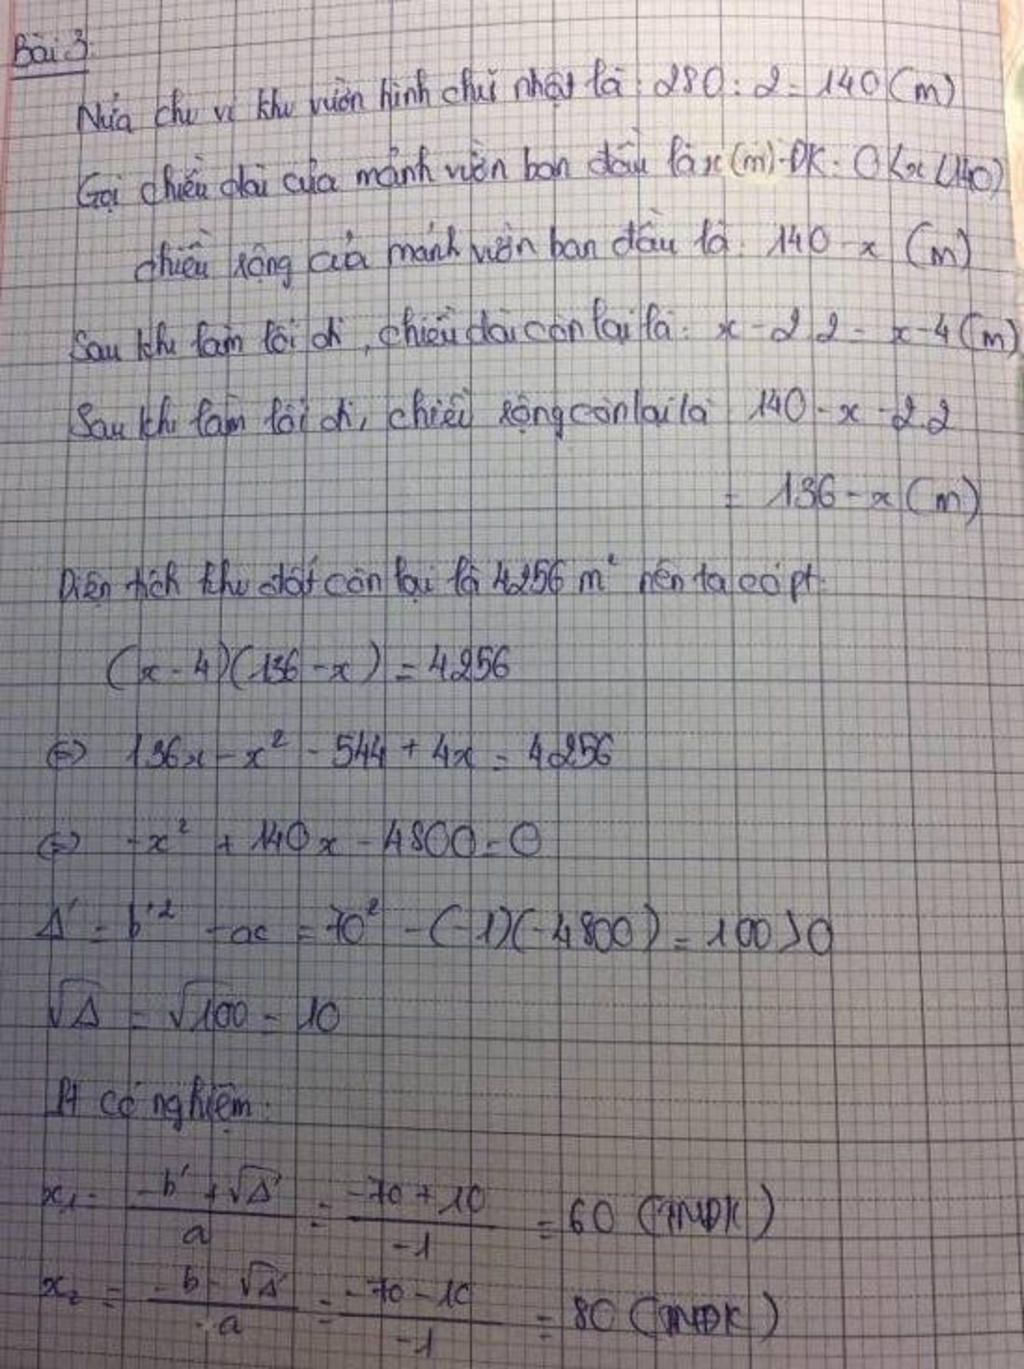 Bài 3:
Nửa chu vi khu vườn hình chữ nhật là: 280 : 2 = 140 (m)
Gọi chiều dài của mảnh vườn ban đầu là x (m) - ĐK: 0 < x < 140)
chiều rộng của mảnh vườn ban đầu là: 140 - x (m)
Sau khi làm lối đi, chiều dài còn lại là: x - 2.2 = x - 4 (m)
Sau khi làm lối đi, chiều rộng còn lại là 140 - x - 2.2
= 136 - x (m)
Diện tích khu đất còn lại là 4256 m² nên ta có pt:
(x - 4)(136 - x) = 4256
⇔ 136x - x² - 544 + 4x = 4256
⇔ -x² + 140x - 4800 = 0
Δ' = b'² - ac = 70² - (-1)(-4800) = 100 > 0
√Δ = √100 = 10
Pt có nghiệm:
x₁ = (-b' + √Δ')/a = (-70 + 10)/(-1) = 60 (TMĐK)
x₂ = (-b - √Δ')/a = (-70 - 10)/(-1) = 80 (TMĐK)